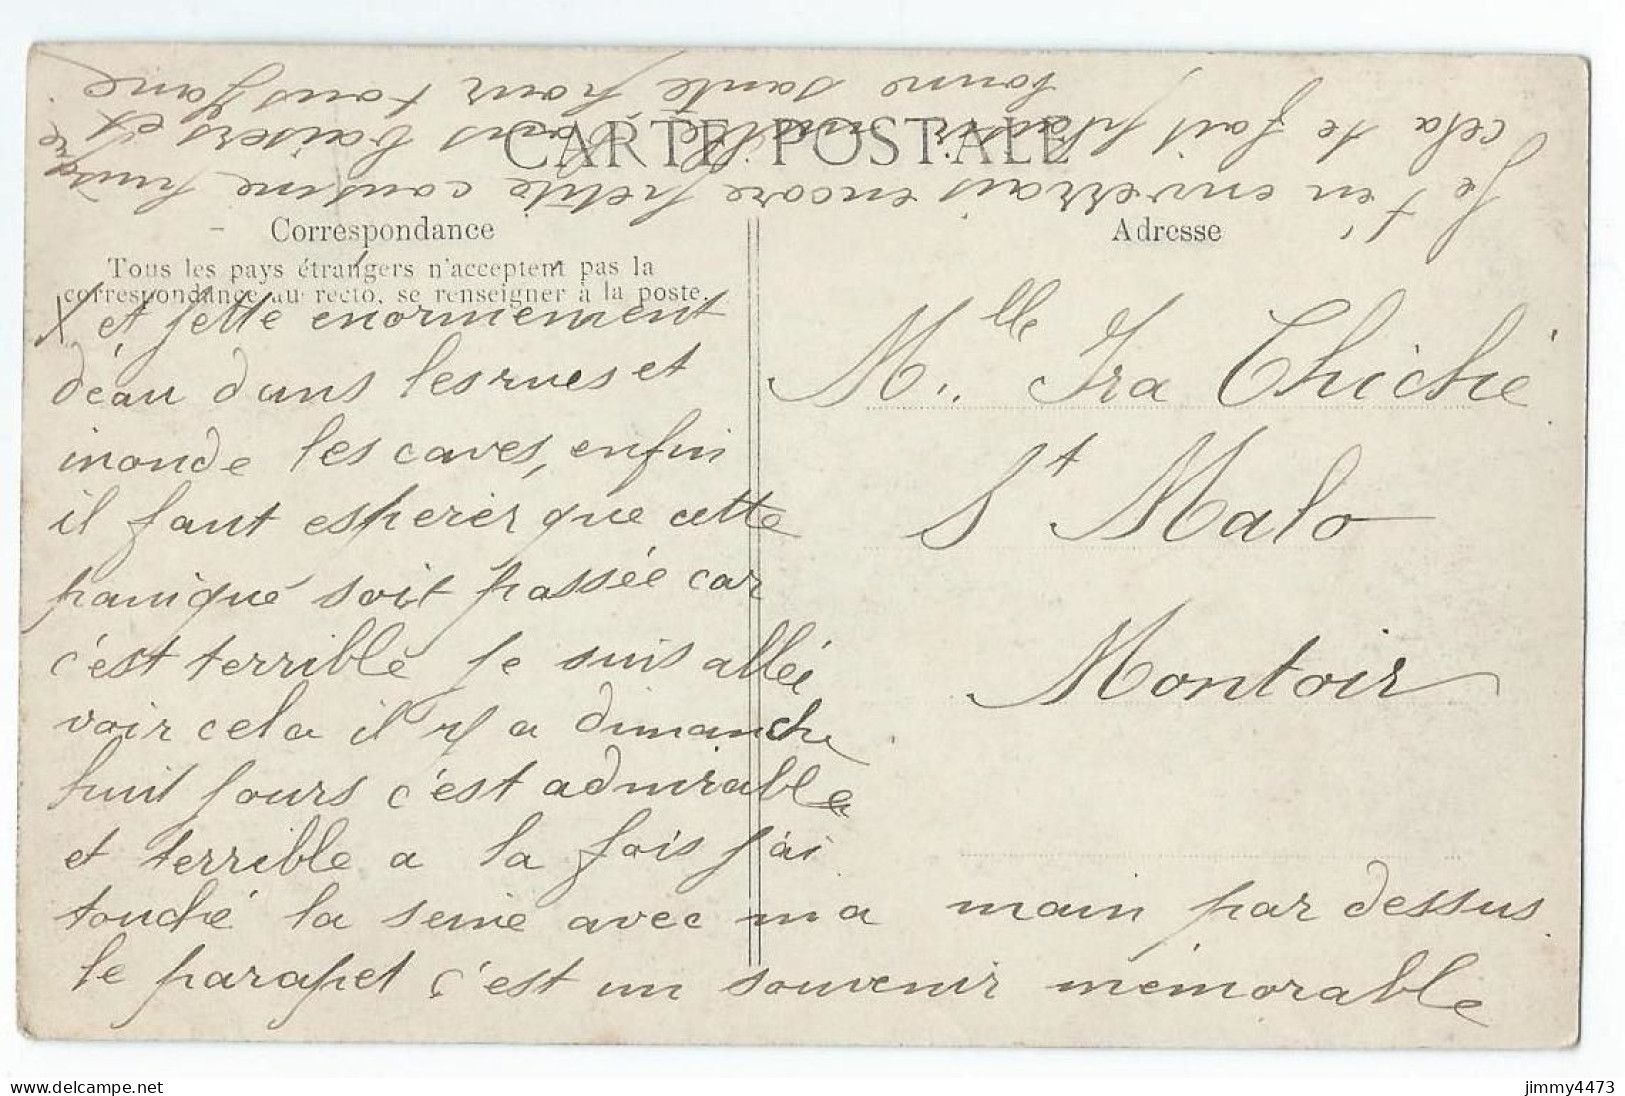 CARTE POSTALE
Correspondance
Tous les pays étrangers n'acceptent pas la
correspondance au recto, se renseigner à la poste.
Adresse
X et jette enormement
d'eau dans les rues et
inonde les caves, enfin
il faut esperer que cette
panique soit passée car
c'est terrible je suis allée
voir cela il y a dimanche
huit jours c'est admirable
et terrible a la fois j'ai
touché la seine avec ma main par dessus
le parapet c'est un souvenir mémorable
Je t'en enverrais encore petite cousine puisque
cela te fait plaisir mille bons baisers et
bonne santé pour tous Jane
Mlle Ira Chiché
St Malo
Montoir
jimmy4473
www.delcampe.net